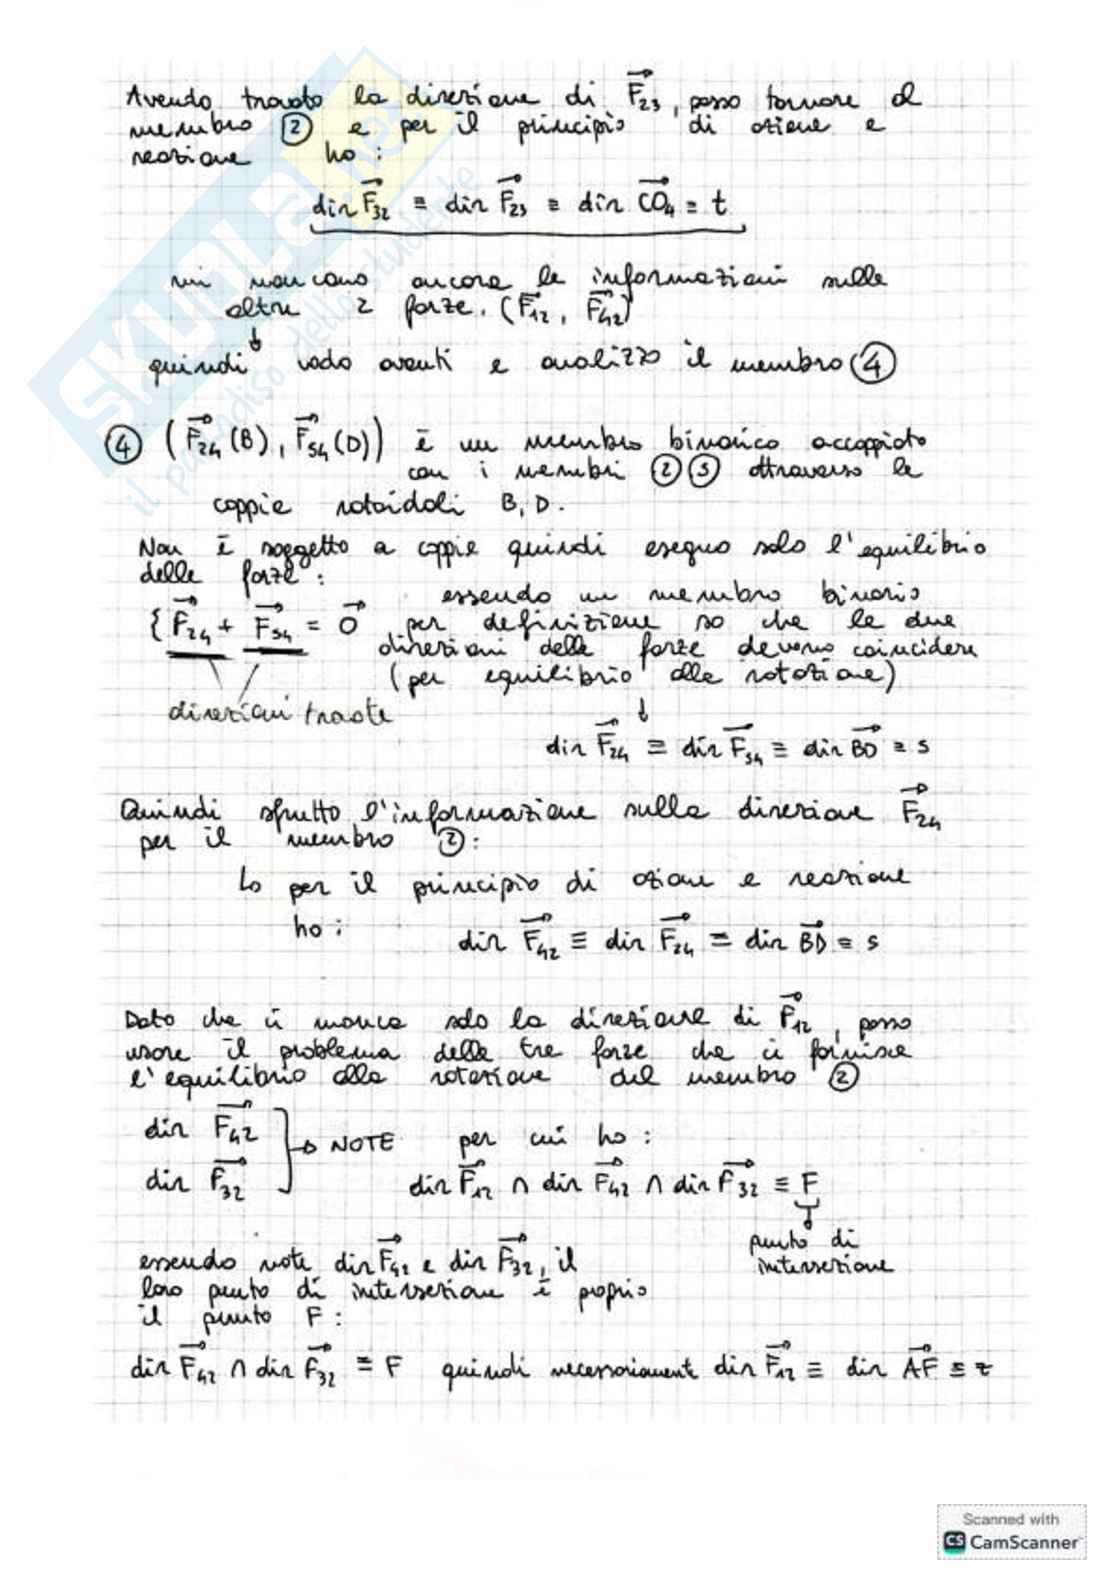 Avendo trovato la direzione di F₂₃, posso tornare al
membro ② e per il principio di azione e
reazione ho:
dir F₃₂ ≡ dir F₂₃ ≡ dir CO₄ ≡ t
mi mancano ancora le informazioni sulle
altre 2 forze. (F₁₂, F₄₂)
↓
quindi vado avanti e analizzo il membro ④
④ (F₂₄(B), F₅₄(D)) è un membro binario accoppiato
con i membri ② ⑤ attraverso le
coppie rotoidali B, D.
Non è soggetto a coppie quindi eseguo solo l'equilibrio
delle forze:
essendo un membro binario
{F₂₄ + F₅₄ = 0 per definizione so che le due
direzioni delle forze devono coincidere
(per equilibrio alla rotazione)
direzioni trovate
↓
dir F₂₄ ≡ dir F₅₄ ≡ dir BD ≡ s
Quindi sfrutto l'informazione sulla direzione F₂₄
per il membro ②:
↳ per il principio di azione e reazione
ho: dir F₄₂ ≡ dir F₂₄ ≡ dir BD ≡ s
Dato che ci manca solo la direzione di F₁₂, posso
usare il problema delle tre forze che ci fornisce
l'equilibrio alla rotazione del membro ②
dir F₄₂
→ NOTE per cui ho:
dir F₃₂
dir F₁₂ ∩ dir F₄₂ ∩ dir F₃₂ ≡ F
punto di
intersezione
essendo note dir F₄₂ e dir F₃₂, il
loro punto di intersezione è proprio
il punto F:
dir F₄₂ ∩ dir F₃₂ ≡ F quindi necessariament dir F₁₂ ≡ dir AF ≡ z
SKUOLA.net
il paradiso dello studente
Scanned with
CS CamScanner